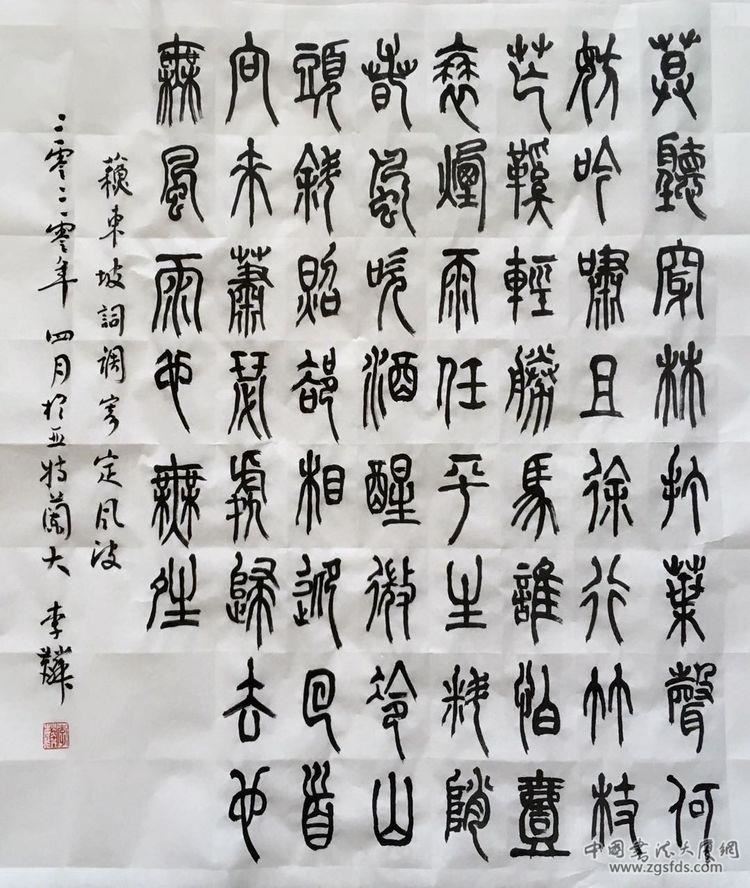 莫聽穿林打葉聲何
妨吟嘯且徐行竹杖
芒鞵輕勝馬誰怕壹
衰煙雨任平生料陗
春風吹酒醒微冷山
頭斜照卻相迎回首
向來蕭瑟處歸去也
無風雨也無晴
蘇東坡詞調寄定風波
二零二零年四月於亚特蘭大 李
中國書法大厦網
www.zgsfds.com